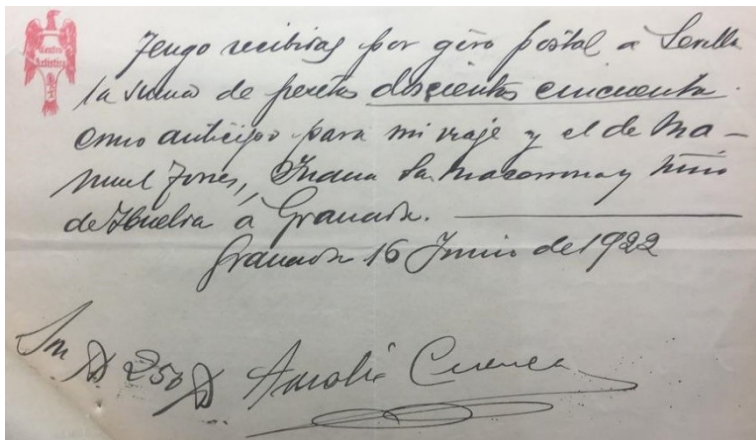 Centro
Artístico
Tengo recibidas por giro postal a Sevilla
la suma de pesetas doscientas cincuenta
como anticipo para mi viaje y el de Ma-
nuel Torres, Juana la Macarrona y Niño
de Huelva á Granada.
Granada 16 Junio de 1922
Son 250 Amalio Cuenca